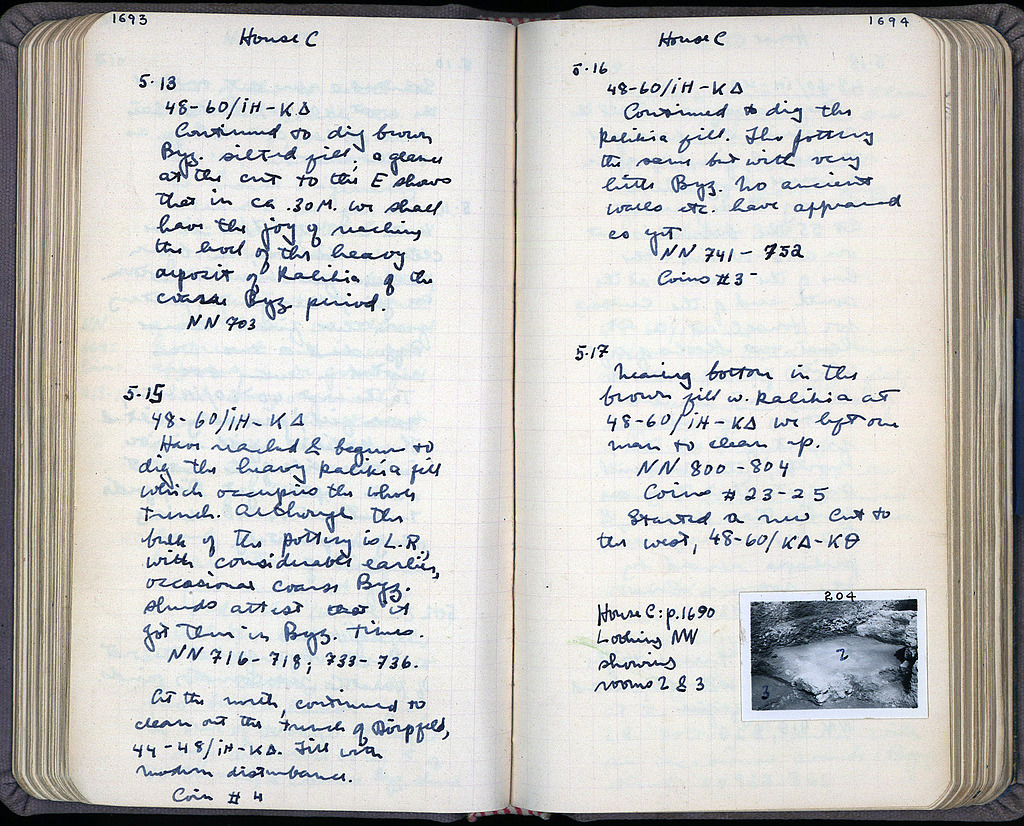 1693
House C
5.13
48-60/iH-KΔ
Continued to dig brown
Byz. silted fill; a glance
at the cut to the E shows
that in ca .30 M. we shall
have the joy of reaching
the level of the heavy
deposit of Ralikia of the
coarse Byz. period.
NN 703
5.15
48-60/iH-KΔ
Have reached & begun to
dig the heavy ralikia fill
which occupies the whole
trench. Although the
bulk of the pottery is L.R.,
with considerable earlier,
occasional coarse Byz.
sherds attest that it
got there in Byz. times.
NN 716-718; 733-736.
At the north, continued to
clean out the trench of Dörpfeld,
44-48/iH-KΔ. Fill with
modern disturbance.
Coin # 4
1694
House C
5.16
48-60/iH-KΔ
Continued to dig the
Ralikia fill. The pottery
the same but with very
little Byz. No ancient
walls etc. have appeared
as yet
NN 741-752
Coins #5
5.17
Nearing bottom in the
brown fill w. Ralikia at
48-60/iH-KΔ we left one
man to clean up.
NN 800-804
Coins # 23-25
Started a new cut to
the west, 48-60/KΔ-KΘ
House C: p.1690
Looking NW
showing
rooms 2 & 3
204
2
3